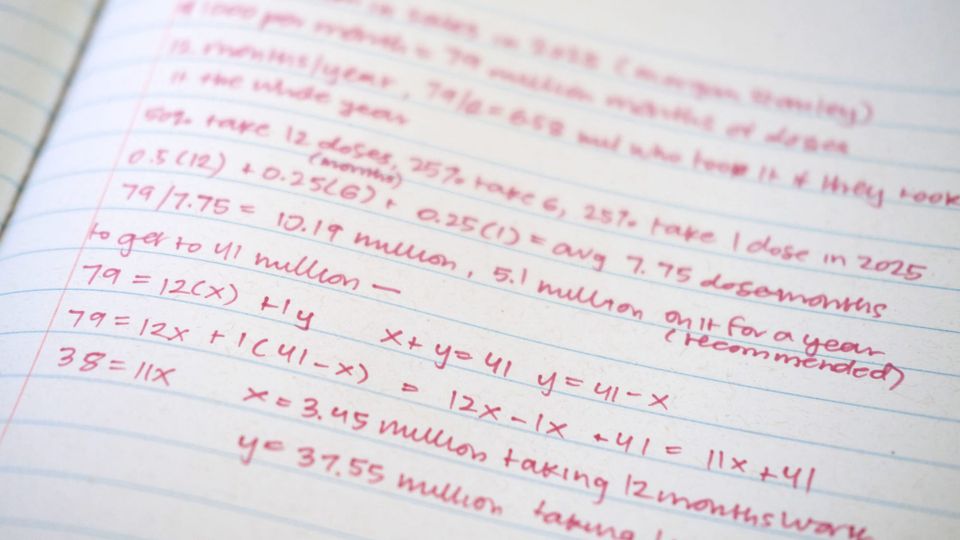 in sales in 2025 (Morgan Stanley)
$1000 per month = 79 million months of doses
12 months/year, 79/12 = 6.58 mil who took it & they took
it the whole year
50% take 12 doses, 25% take 6, 25% take 1 dose in 2025
(months)
0.5(12) + 0.25(6) + 0.25(1) = avg 7.75 dosemonths
79/7.75 = 10.19 million, 5.1 million on it for a year
(recommended)
to get to 41 million —
79 = 12(x) + 1y x + y = 41 y = 41 - x
79 = 12x + 1(41 - x) = 12x - 1x + 41 = 11x + 41
38 = 11x x = 3.45 million taking 12 months work
y = 37.55 million taking